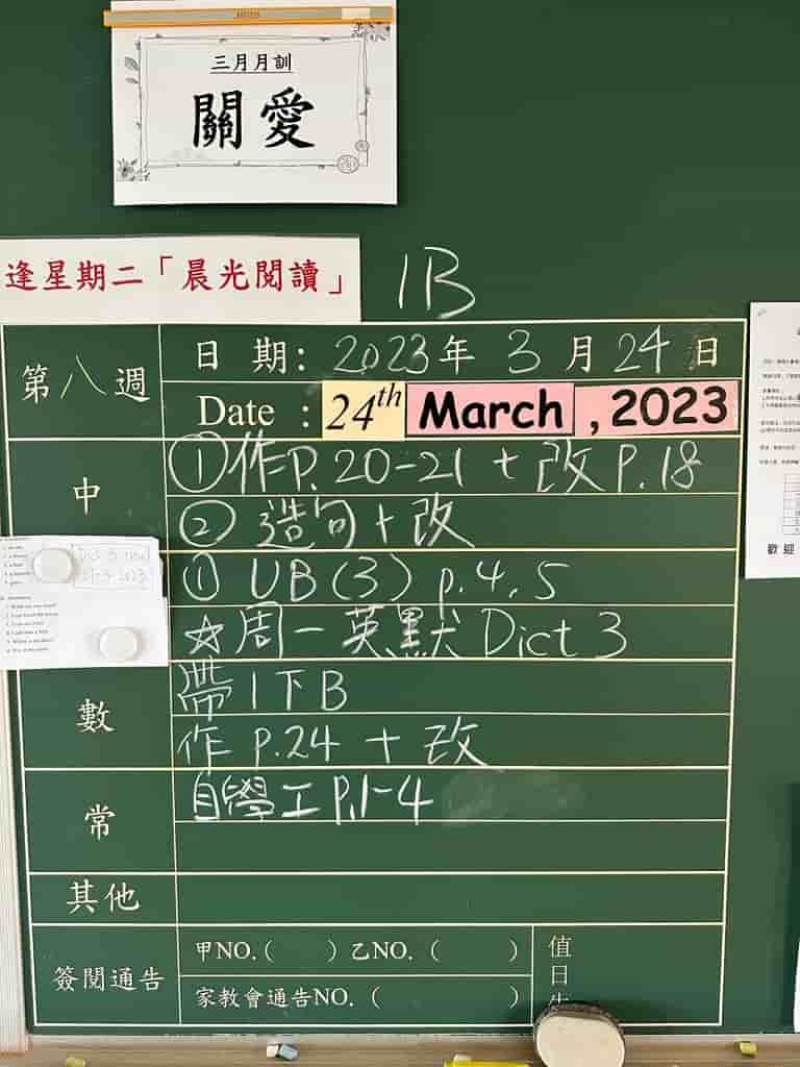 三月月訓
關愛
逢星期二「晨光閱讀」
1B
第八週
日 期: 2023年 3 月 24 日
Date : 24th March , 2023
中
①作P.20-21 + 改P.18
② 造句+改
① UB(3) p.4,5
☆周一英默 Dict 3
數
帶1下B
作 P.24 + 改
常
自學工P.1-4
其他
簽閱通告
甲NO.( ) 乙NO. ( )
家教會通告NO. ( )
值日
歡迎